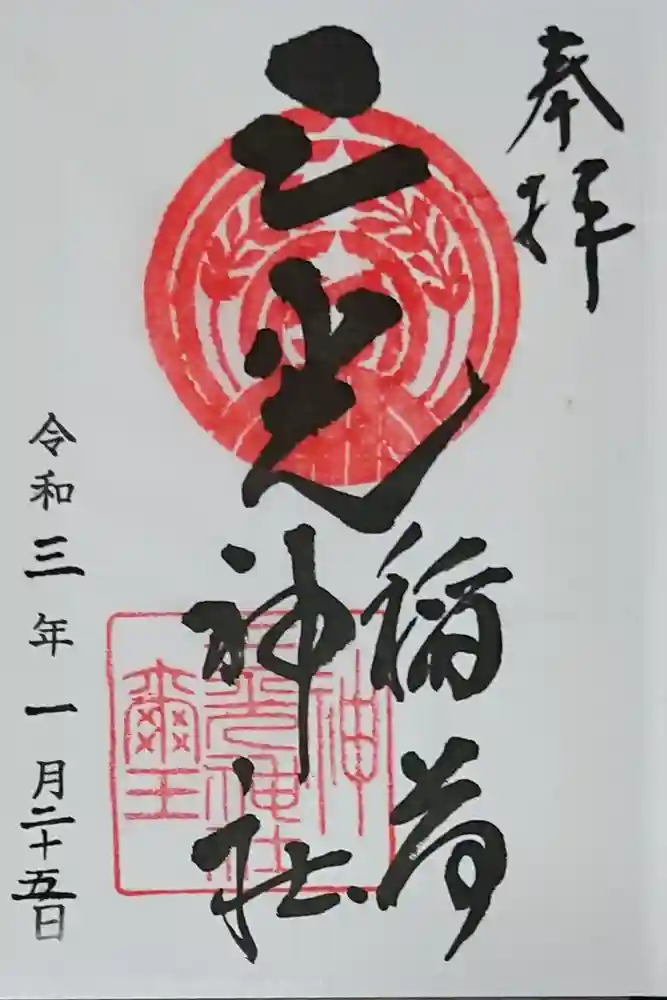 奉拝
三光
稲荷
神社
令和三年一月二十五日
神
三光神社
璽